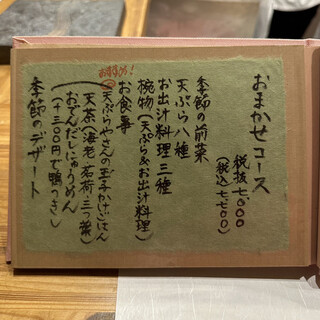 おまかせコース
税抜七、〇〇〇
(税込七、七〇〇)
季節の前菜
天ぷら八種
お出汁料理三種
椀物(天ぷら&お出汁料理)
お食事
お薦め!
天ぷらやさんの玉子かけごはん
天茶(海老・茗荷・三つ葉)
おでんだしにゅうめん
(+三三〇円で鴨つき)
季節のデザート